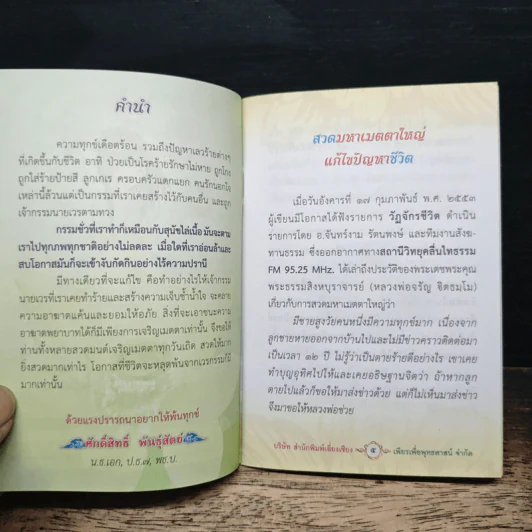 คำนำ
ความทุกข์เดือดร้อน รวมถึงปัญหาเลวร้ายต่างๆ
ที่เกิดขึ้นกับชีวิต อาทิ ป่วยเป็นโรคร้ายรักษาไม่หาย ถูกโกง
ถูกใส่ร้ายป้ายสี ลูกเกเร ครอบครัวแตกแยก คนรักนอกใจ
เหล่านี้ล้วนแต่เป็นกรรมที่เราเคยสร้างไว้กับคนอื่น และถูก
เจ้ากรรมนายเวรตามทวง
กรรมชั่วที่เราทำก็เหมือนกับสุนัขไล่เนื้อ มันจะตาม
เราไปทุกภพทุกชาติอย่างไม่ลดละ เมื่อใดที่เราอ่อนล้าและ
สบโอกาสมันก็จะเข้าขย้ำกัดกินอย่างไร้ความปรานี
มีทางเดียวที่จะแก้ไข คือทำอย่างไรให้เจ้ากรรม
นายเวรที่เราเคยทำร้ายและสร้างความเจ็บช้ำน้ำใจ จะคลาย
ความอาฆาตแค้นและยอมให้อภัย สิ่งที่จะเอาชนะความ
อาฆาตพยาบาทได้ก็มีเพียงการเจริญเมตตาเท่านั้น จึงขอให้
ท่านทั้งหลายสวดมนต์เจริญเมตตาทุกวันเถิด สวดให้มาก
ยิ่งสวดมากเท่าไร โอกาสที่ชีวิตจะหลุดพ้นจากเวรกรรมก็มี
มากเท่านั้น
ด้วยแรงปรารถนาอยากให้พ้นทุกข์
ศักดิ์สิทธิ์ พันธุ์สัตย์
น.ธ.เอก, ป.ธ.๗, พธ.บ.
สวดมหาเมตตาใหญ่
แก้ไขปัญหาชีวิต
เมื่อวันอังคารที่ ๑๗ กุมภาพันธ์ พ.ศ. ๒๕๕๓
ผู้เขียนมีโอกาสได้ฟังรายการ วัฏจักรชีวิต ดำเนิน
รายการโดย อ.จันทร์งาม รัตนพงษ์ และทีมงานสังฆ-
ทานธรรม ซึ่งออกอากาศทางสถานีวิทยุคลื่นไทธรรม
FM 95.25 MHz. ได้เล่าถึงประวัติของพระเดชพระคุณ
พระธรรมสิงหบุราจารย์ (หลวงพ่อจรัญ ฐิตธมฺโม)
เกี่ยวกับการสวดมหาเมตตาใหญ่ว่า
มีชายสูงวัยคนหนึ่งมีความทุกข์มาก เนื่องจาก
ลูกชายหายออกจากบ้านไปและไม่มีข่าวคราวติดต่อมา
เป็นเวลา ๑๒ ปี ไม่รู้ว่าเป็นตายร้ายดีอย่างไร เขาเคย
ทำบุญอุทิศไปให้และเคยอธิษฐานจิตว่า ถ้าหากลูก
ตายไปแล้วก็ขอให้มาส่งข่าวด้วย แต่ก็ไม่เห็นมาส่งข่าว
จึงมาขอให้หลวงพ่อช่วย
บริษัท สำนักพิมพ์เลี่ยงเชียง ๕ เพียรเพื่อพุทธศาสน์ จำกัด